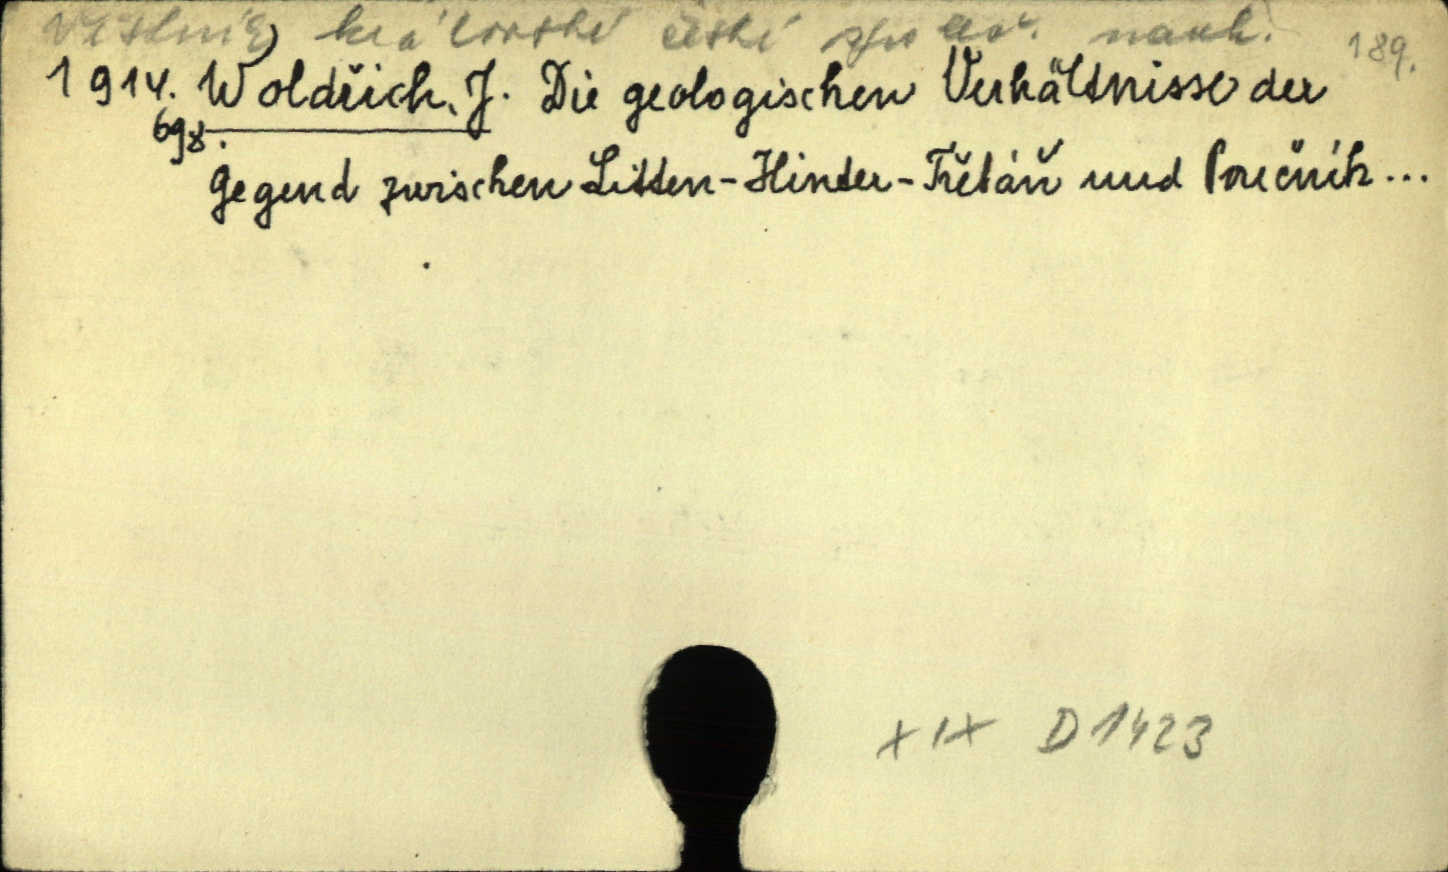 Věstník královské české společ. nauk. 189.
1914. Woldřich, J. Die geologischen Verhältnisse der
698.
Gegend zwischen Litten-Hinter-Třebáň und Poučník...
XIX D 1423